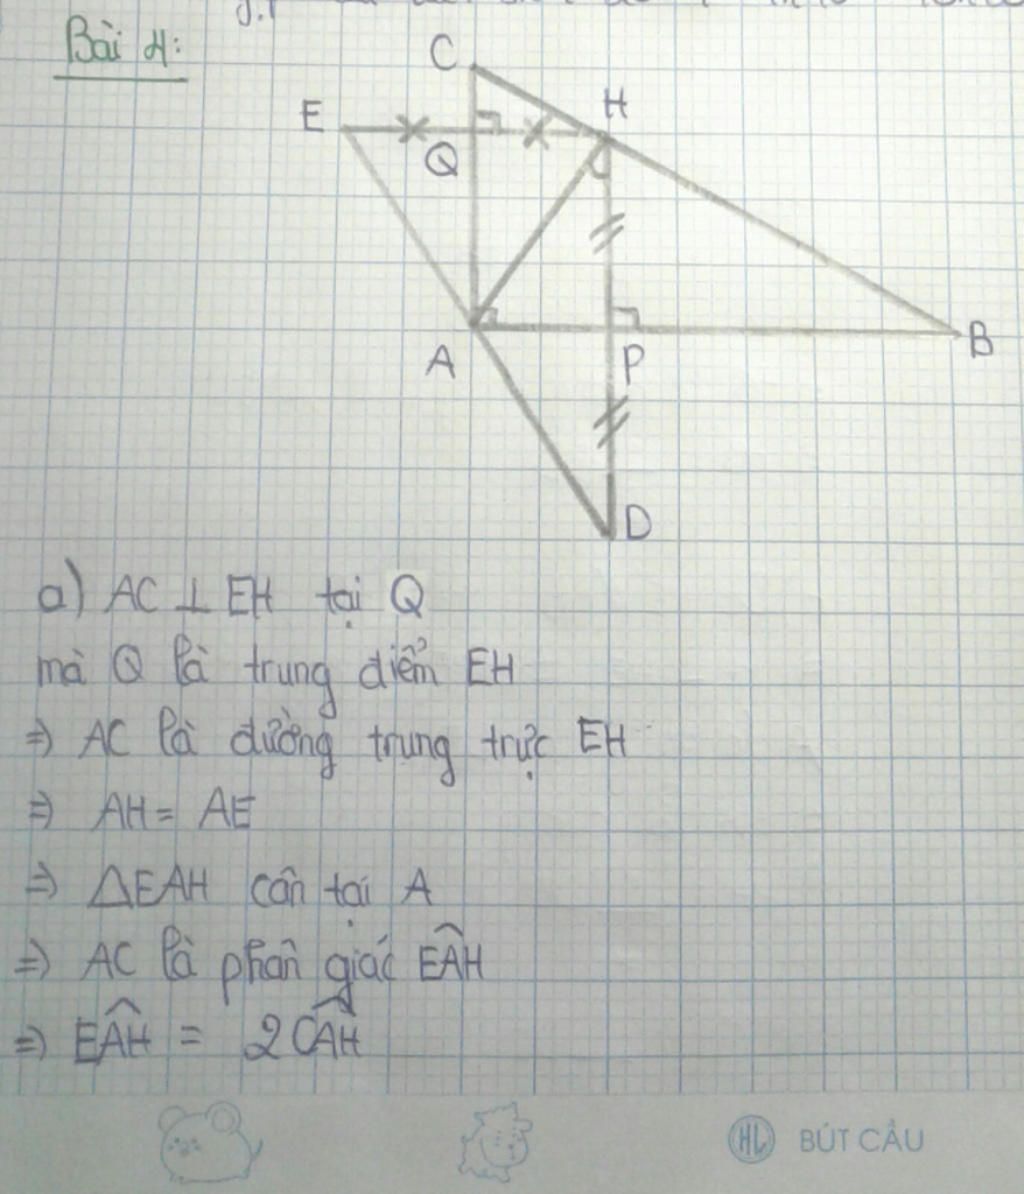 Bài 4:
C
H
E
Q
A
P
B
D
a) AC ⊥ EH tại Q
mà Q là trung điểm EH
⇒ AC là đường trung trực EH
⇒ AH = AE
⇒ ΔEAH cân tại A
⇒ AC là phân giác EÂH
⇒ EÂH = 2CÂH
HL BÚT CẦU